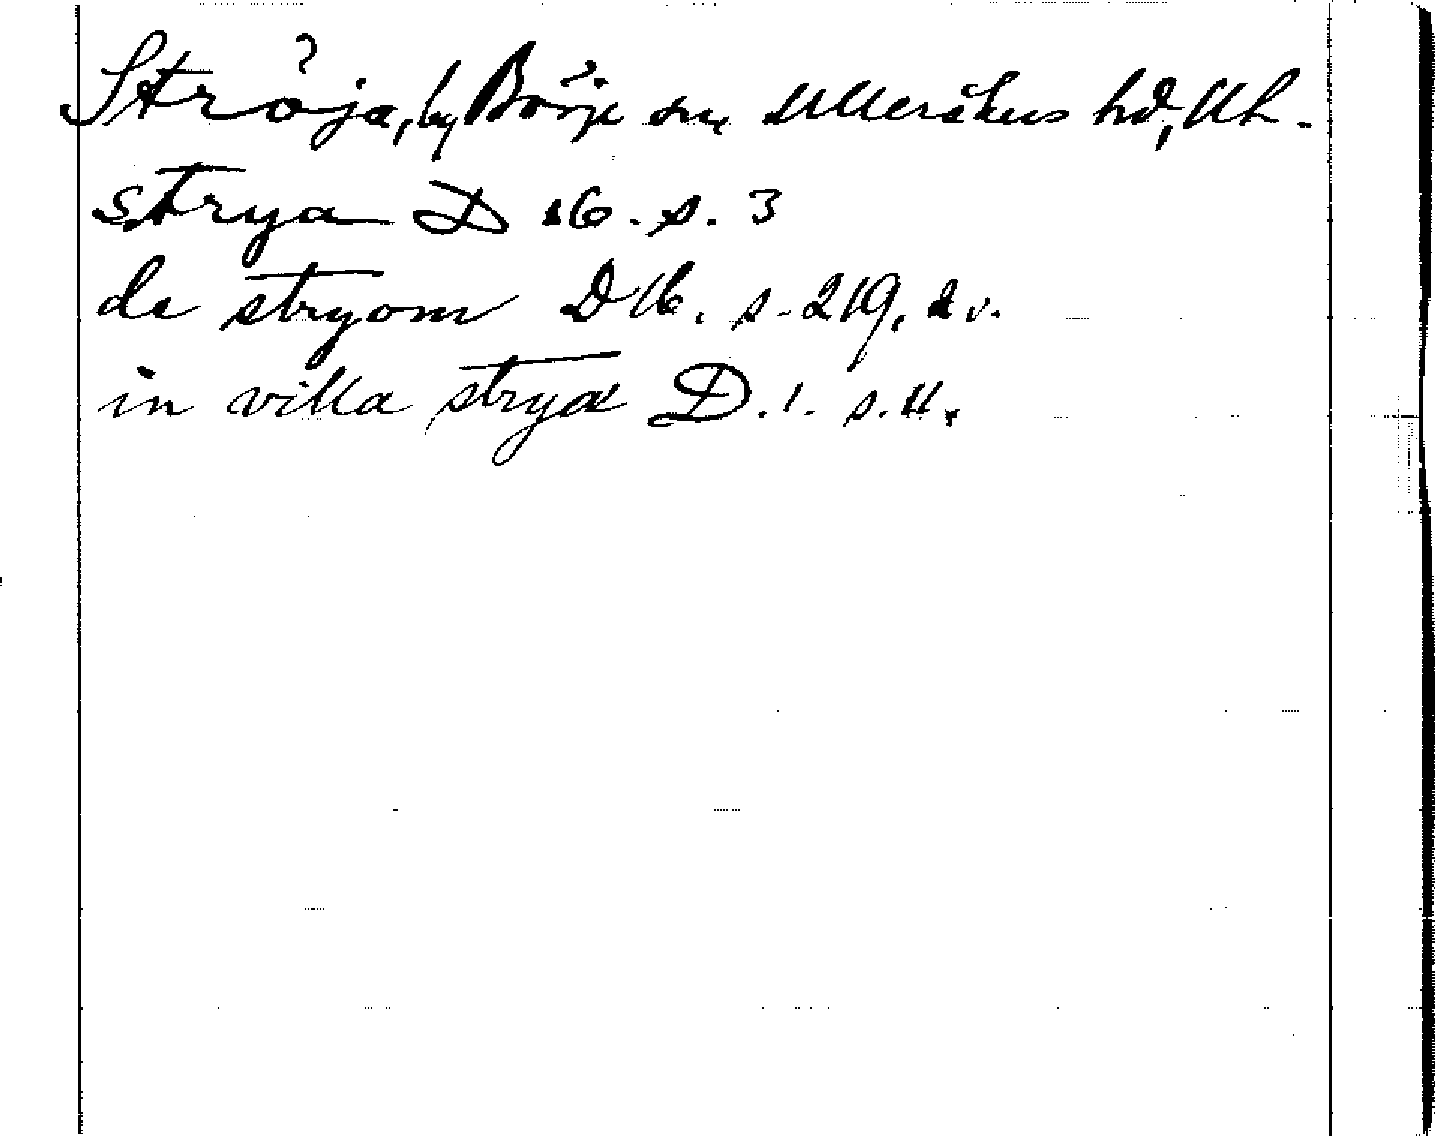 Ströja, by Börje sn, Ulleråkers hd, Upl.
strya D 16. s. 3
de stryom D 16. s. 219, 2 v.
in villa strya D. 1. s. 11.